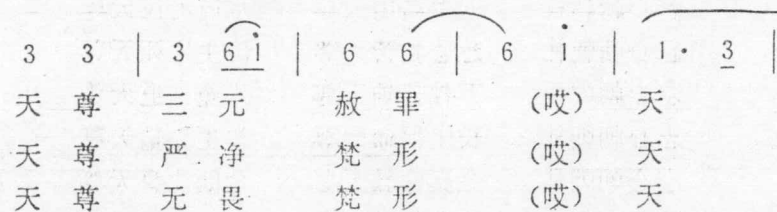 3 3 | 3 6 i | 6 6 | 6 i | 1 · 3 |
天 尊 三 元 赦 罪 (哎) 天
天 尊 严 净 梵 形 (哎) 天
天 尊 无 畏 梵 形 (哎) 天